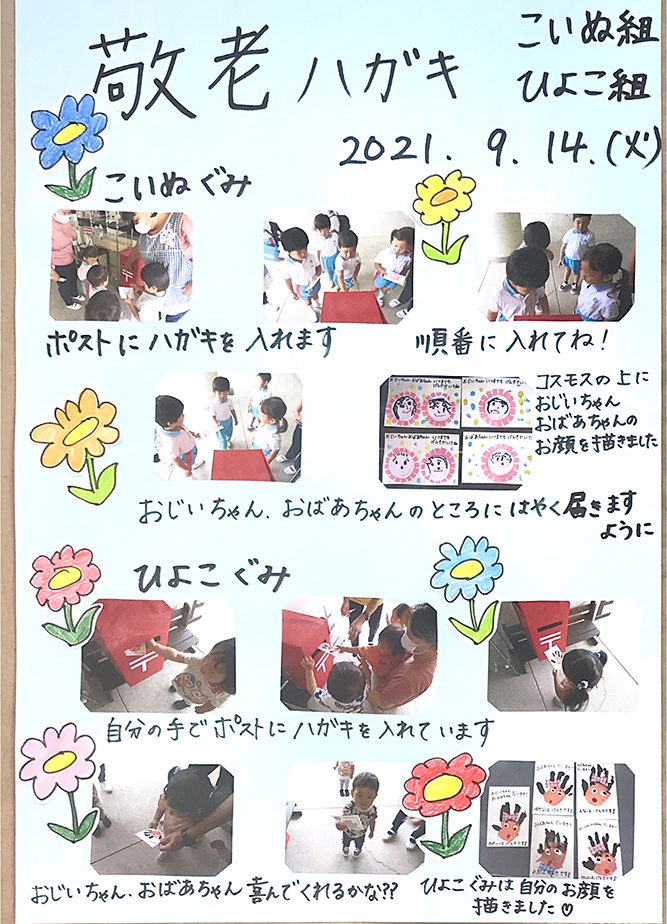 敬老ハガキ
こいぬ組
ひよこ組
2021. 9. 14.(火)
こいぬぐみ
ポストにハガキを入れます
順番に入れてね!
コスモスの上に
おじいちゃん
おばあちゃんの
お顔を描きました
おじいちゃん、おばあちゃんのところにはやく届きます
ように
ひよこぐみ
〒
〒
〒
自分の手でポストにハガキを入れています
おじいちゃん、おばあちゃん喜んでくれるかな??
ひよこぐみは自分のお顔を
描きました♡